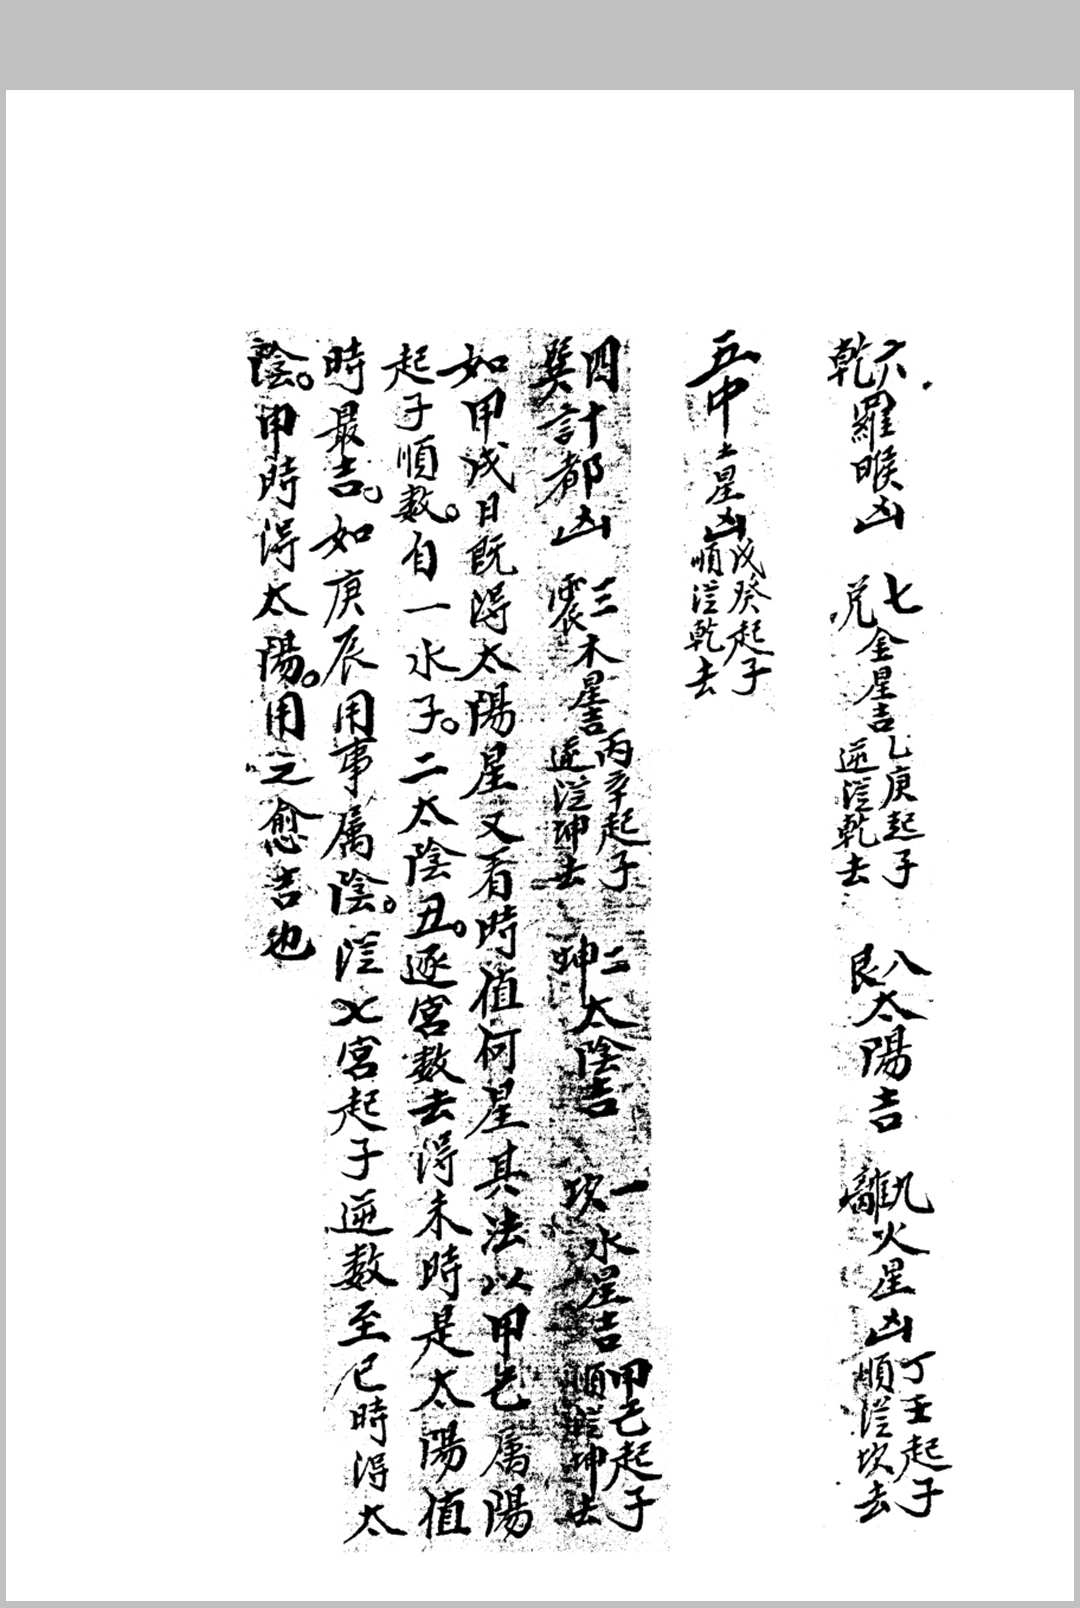 六乾羅睺凶　七兌金星吉乙庚起子逆從乾去　八艮太陽吉　九離火星凶丁壬起子順從坎去
五中土星凶戊癸起子順從乾去
四巽計都凶　三震木星吉丙辛起子逆從坤去　二坤太陰吉　一坎水星吉甲己起子順從坤去
如甲戌日既得太陽星又看時值何星其法以甲己属陽
起子順数。自一水子。二太陰丑。逐宮数去得未時是太陽值
時最吉。如庚辰用事属陰。從七宮起子逆数至巳時得太
陰。甲時得太陽。用之愈吉也